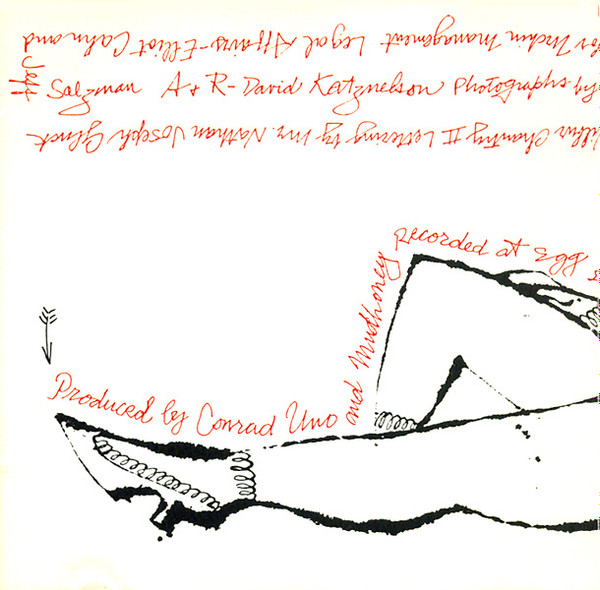 for Urchin Management Legal Affairs-Elliot Cahn and
Jeff Salzman A + R - David Katznelson Photography-by
Chantry II Lettering by Mr. Nathan Joseph Gluck
Produced by Conrad Uno and Mudhoney recorded at Egg